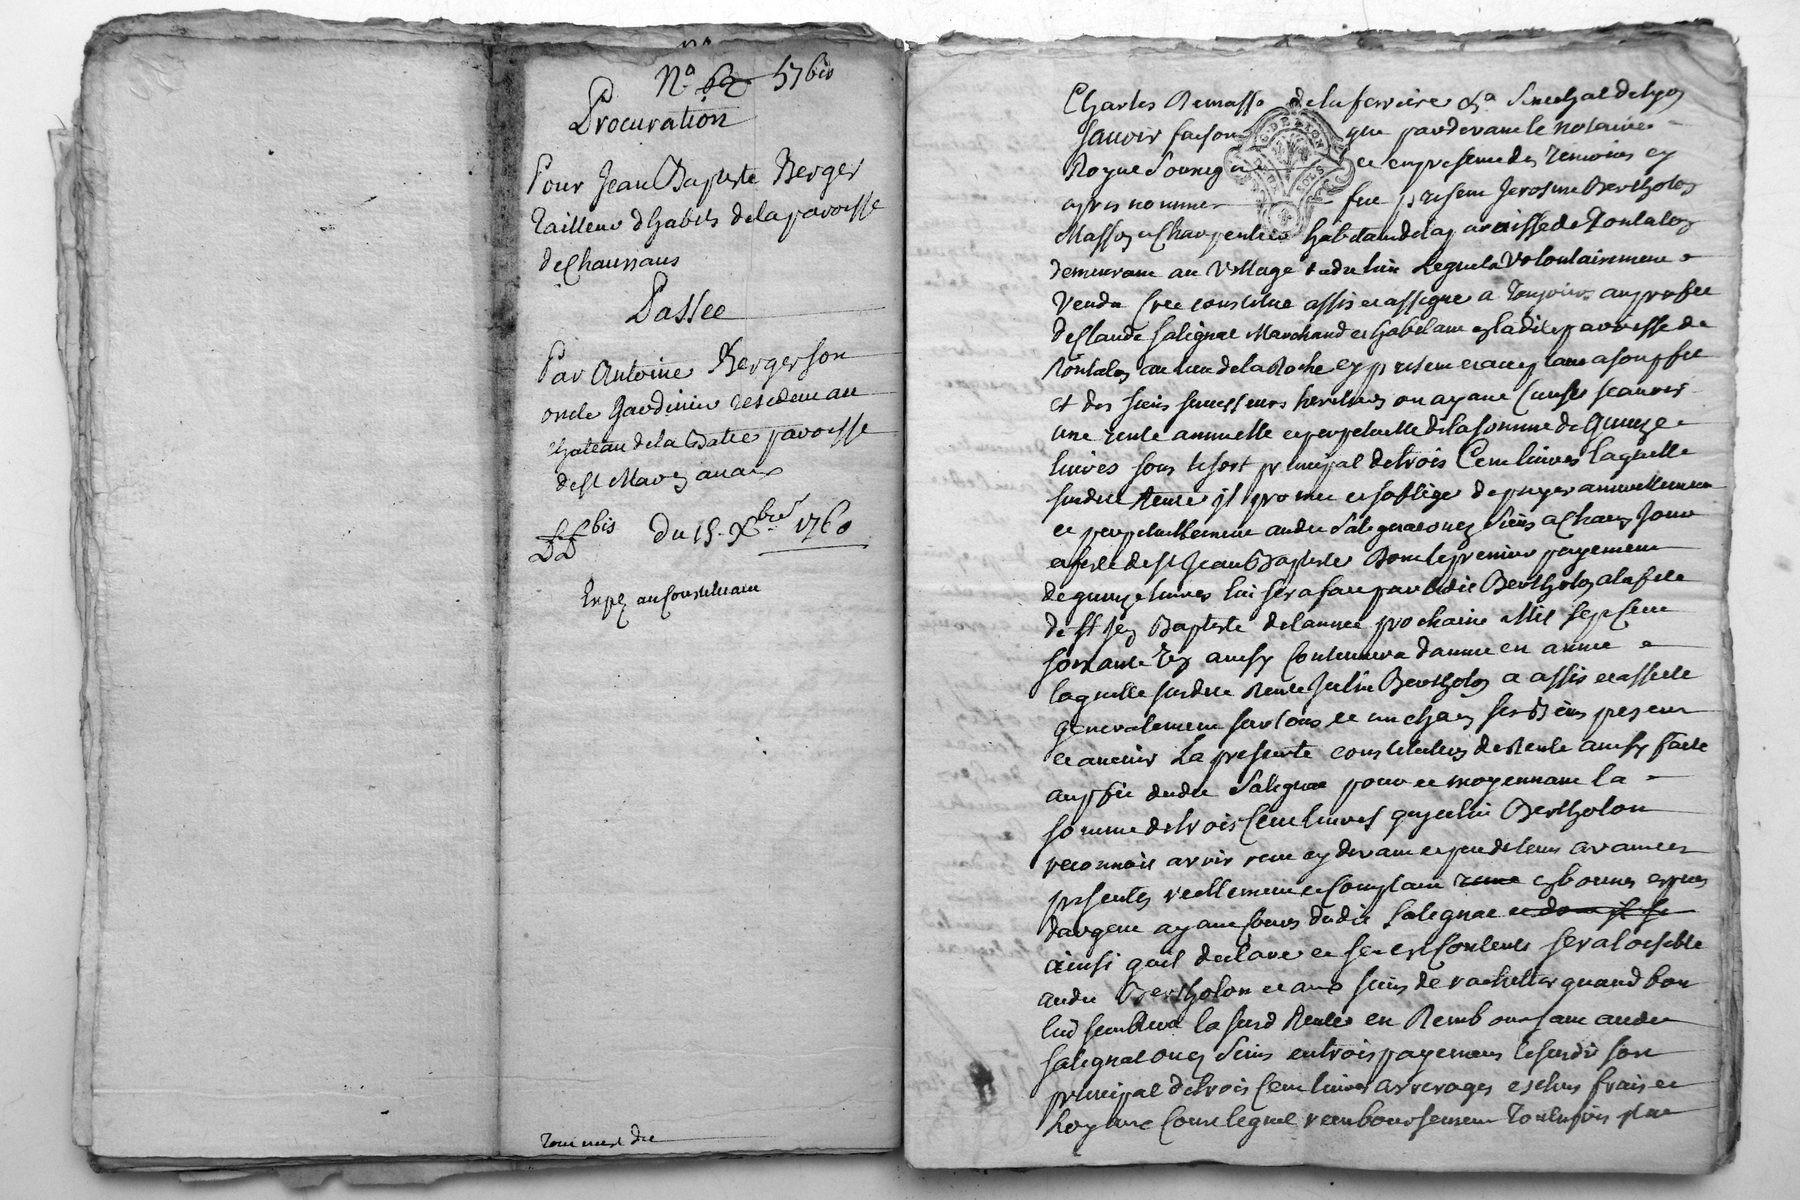 N.o 62 57 bis
Procuration
Pour Jean Baptiste Berger
tailleur dhabits de la paroisse
de Chaussans
Passée
Par Antoine Berger son
oncle Jardinier residant au
chateau de la Batie paroisse
de st
bis Du 15. Xbre 1760
Expé au Constituant
Charles Remasse de la ferriere &a Senechal de lyon
savoir faison que pardevant le notaire
Royal Soussigné et en presence des temoins cy
apres nommes fut present Jerosme Bertholon
Masson et Charpentier habitant de la paroisse de Rontalon
demeurant au Village lequel a Volontairement
Vendu Cree constitue assis et assigne a Toujours au proffit
de Claude Salignat Marchand et habitant en ladite paroisse de
Rontalon au lieu de la Roche cy present et acceptant a son proffit
et des siens successeurs heritiers ou ayant Cause scavoir
une rente annuelle et perpetuelle de la somme de Quinze
livres sous le sort principal de trois Cent livres laquelle
susdite Rente il promet et soblige de payer annuellement
et perpetuellement audit Salignat ou es siens a Chaque Jour
et feste de st Jean Baptiste Dont le premier payement
de quinze livres lui sera fait par ledit Bertholon a la feste
de st Jean Baptiste de lannee prochaine Mil sept Cent
soixante un ainsy Continuera dannee en annee
laquelle susdite Rente Icelui Bertholon a assis et asseste
Generalement sur tous et un chacun ses Biens presents
et avenir La presente constitution de Rente ainsy faite
au proffit dudit Salignat pour et moyennant la
somme de trois Cent livres que icelui Bertholon
reconnait avoir receu cy devant et peu de tems avant ces
presentes reellement et Comptant en bonnes especes
dargent ayant Cours dudit Salignat
ainsi quil declare et sen est Contente sera loisible
audit Bertholon et aux siens de rachetter quand bon
lui semblera la susd Rente en Remboursant audit
Salignat ou es siens en trois payemens le susdit sort
principal de trois Cent livres arrerages eschus frais et
Loyaux Cousts lequel remboursement Toutefois
Tournez